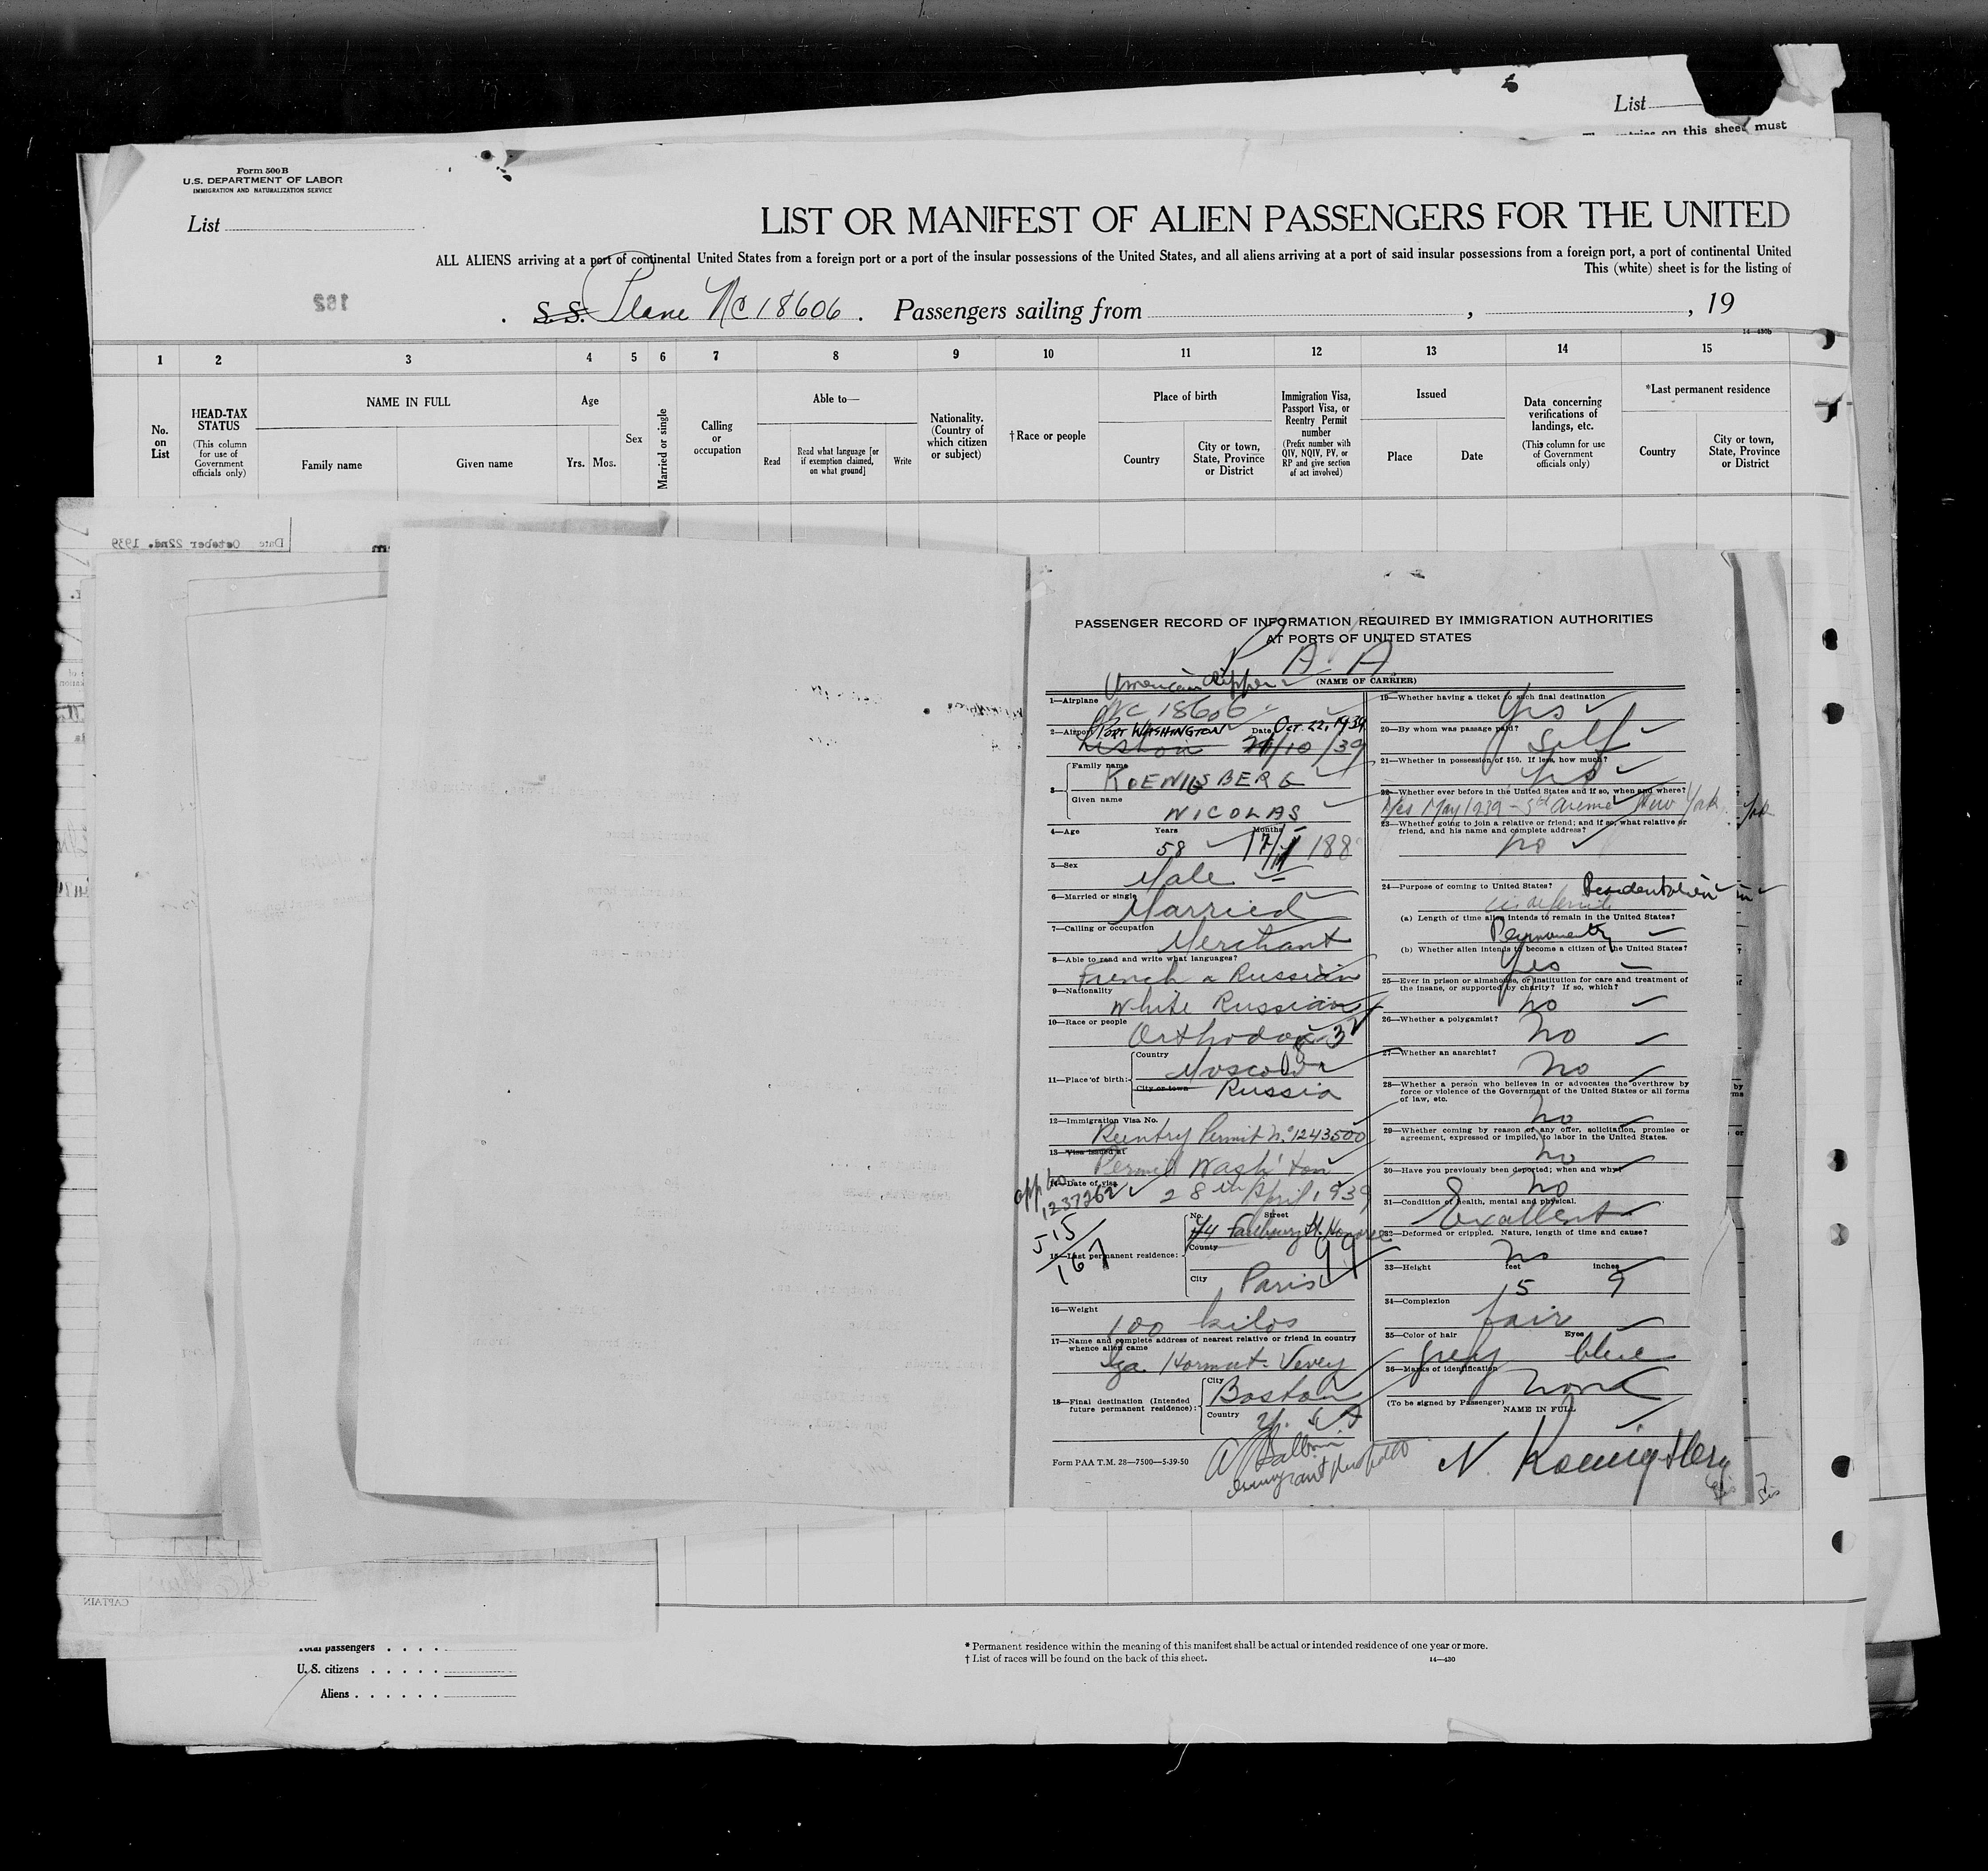 List
The entries on this sheet must
Form 500 B
U.S. DEPARTMENT OF LABOR
IMMIGRATION AND NATURALIZATION SERVICE
List
LIST OR MANIFEST OF ALIEN PASSENGERS FOR THE UNITED
ALL ALIENS arriving at a port of continental United States from a foreign port or a port of the insular possessions of the United States, and all aliens arriving at a port of said insular possessions from a foreign port, a port of continental United
This (white) sheet is for the listing of
182
S.S. Plane NC 18606. Passengers sailing from , , 19
14—430b
1 2 3 4 5 6 7 8 9 10 11 12 13 14 15
No. on List
HEAD-TAX STATUS
(This column for use of Government officials only)
NAME IN FULL
Family name Given name
Age
Yrs. Mos.
Sex
Married or single
Calling or occupation
Able to—
Read Read what language [or if exemption claimed, on what ground] Write
Nationality. (Country of which citizen or subject)
† Race or people
Place of birth
Country City or town, State, Province or District
Immigration Visa, Passport Visa, or Reentry Permit number
(Prefix number with QIV, NQIV, PV, or RP and give section of act involved)
Issued
Place Date
Data concerning verifications of landings, etc.
(This column for use of Government officials only)
*Last permanent residence
Country City or town, State, Province or District
Date October 22nd. 1939
PASSENGER RECORD OF INFORMATION REQUIRED BY IMMIGRATION AUTHORITIES
AT PORTS OF UNITED STATES
P. A. A.
(NAME OF CARRIER)
American Clipper
1—Airplane NC 18606
2—Airport PORT WASHINGTON Date OCT. 22, 1939
Lisbon /10/39
3— Family name KOENIGSBERG
Given name NICOLAS
4—Age Years 58 Months 17/ 188
5—Sex Male
6—Married or single Married
7—Calling or occupation Merchant
8—Able to read and write what languages?
French & Russian
9—Nationality White Russian
10—Race or people Orthodox
11—Place of birth: Country Moscow
City or town Russia
12—Immigration Visa No.
Reentry Permit No 1243500
13—Visa issued at Permit Wash'ton
14—Date of visa 28th April 1939
app no. 1237262
515
167
15—Last permanent residence: No. Street
44 Faubourg St. Honoré
County 99
City Paris
16—Weight 100 kilos
17—Name and complete address of nearest relative or friend in country
whence alien came
Vevey
18—Final destination (Intended future permanent residence): City Boston
Country
Form PAA T.M. 28—7500—5-39-50
19—Whether having a ticket to such final destination
Yes
20—By whom was passage paid?
Self
21—Whether in possession of $50. If less, how much?
Yes
22—Whether ever before in the United States and if so, when and where?
Yes May 1939 - 5th Avenue New York
23—Whether going to join a relative or friend; and if so, what relative or
friend, and his name and complete address?
No
24—Purpose of coming to United States? Resident alien
indefinite
(a) Length of time alien intends to remain in the United States?
Permanently
(b) Whether alien intends to become a citizen of the United States?
Yes
25—Ever in prison or almshouse, or institution for care and treatment of
the insane, or supported by charity? If so, which?
no
26—Whether a polygamist?
no
27—Whether an anarchist?
no
28—Whether a person who believes in or advocates the overthrow by
force or violence of the Government of the United States or all forms
of law, etc.
no
29—Whether coming by reason of any offer, solicitation, promise or
agreement, expressed or implied, to labor in the United States.
no
30—Have you previously been deported; when and why?
no
31—Condition of health, mental and physical.
Excellent
32—Deformed or crippled. Nature, length of time and cause?
no
33—Height feet inches
5 9
34—Complexion
fair
35—Color of hair Eyes
grey blue
36—Marks of identification
none
(To be signed by Passenger) NAME IN FULL
N. Koenigsberg
CAPTAIN
Total passengers
U. S. citizens
Aliens
* Permanent residence within the meaning of this manifest shall be actual or intended residence of one year or more.
† List of races will be found on the back of this sheet.
14—430